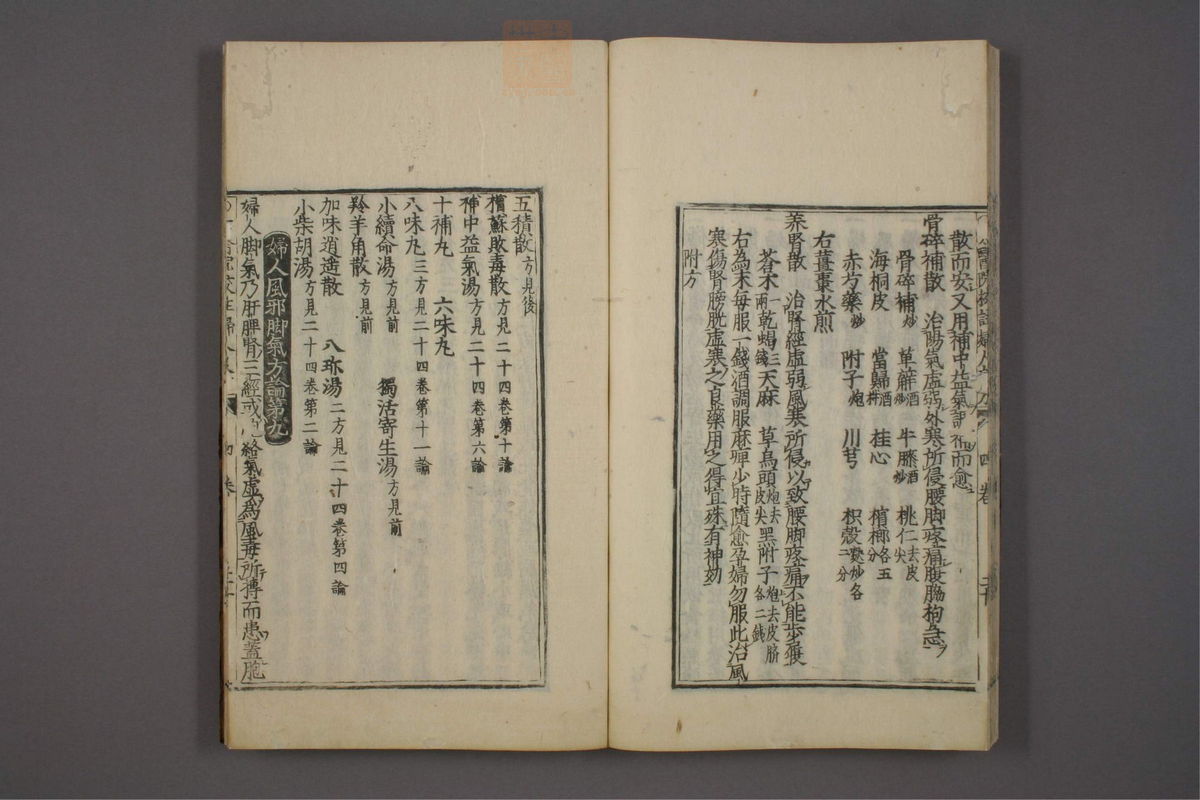 散而安又用補中益氣而愈
骨碎補散　治陽氣虛弱外寒所侵腰脚疼痛腹脇拘急
骨碎補炒　萆薢酒炒　牛膝酒炒　桃仁去皮尖
海桐皮　當歸酒拌　桂心　檳榔各五分
赤芍藥炒　附子炮　川芎　枳殼麩炒各二分
右薑棗水煎
养腎散　治腎經虛弱風寒所侵以致腰脚疼痛不能步履
蒼朮一兩　乾蝎三錢　天麻　草烏頭炮去皮尖　黑附子炮去皮臍各二錢
右為末每服一錢酒調服麻痹少時隨愈孕婦勿服此治風
寒傷腎膀胱虛寒之良藥用之得宜殊有神効
附方
五積散方見後
檳蘇敗毒散方見二十四卷第十論
補中益氣湯方見二十四卷第六論
十補丸　六味丸
八味丸三方見二十四卷第十一論
小續命湯方見前　獨活寄生湯方見前
羚羊角散方見前
加味逍遙散　八珍湯二方見二十四卷第四論
小柴胡湯方見二十四卷第二論
婦人風邪脚氣方論第九
婦人脚氣乃肝脾腎三經或胞絡氣虛為風毒所搏而患蓋胞